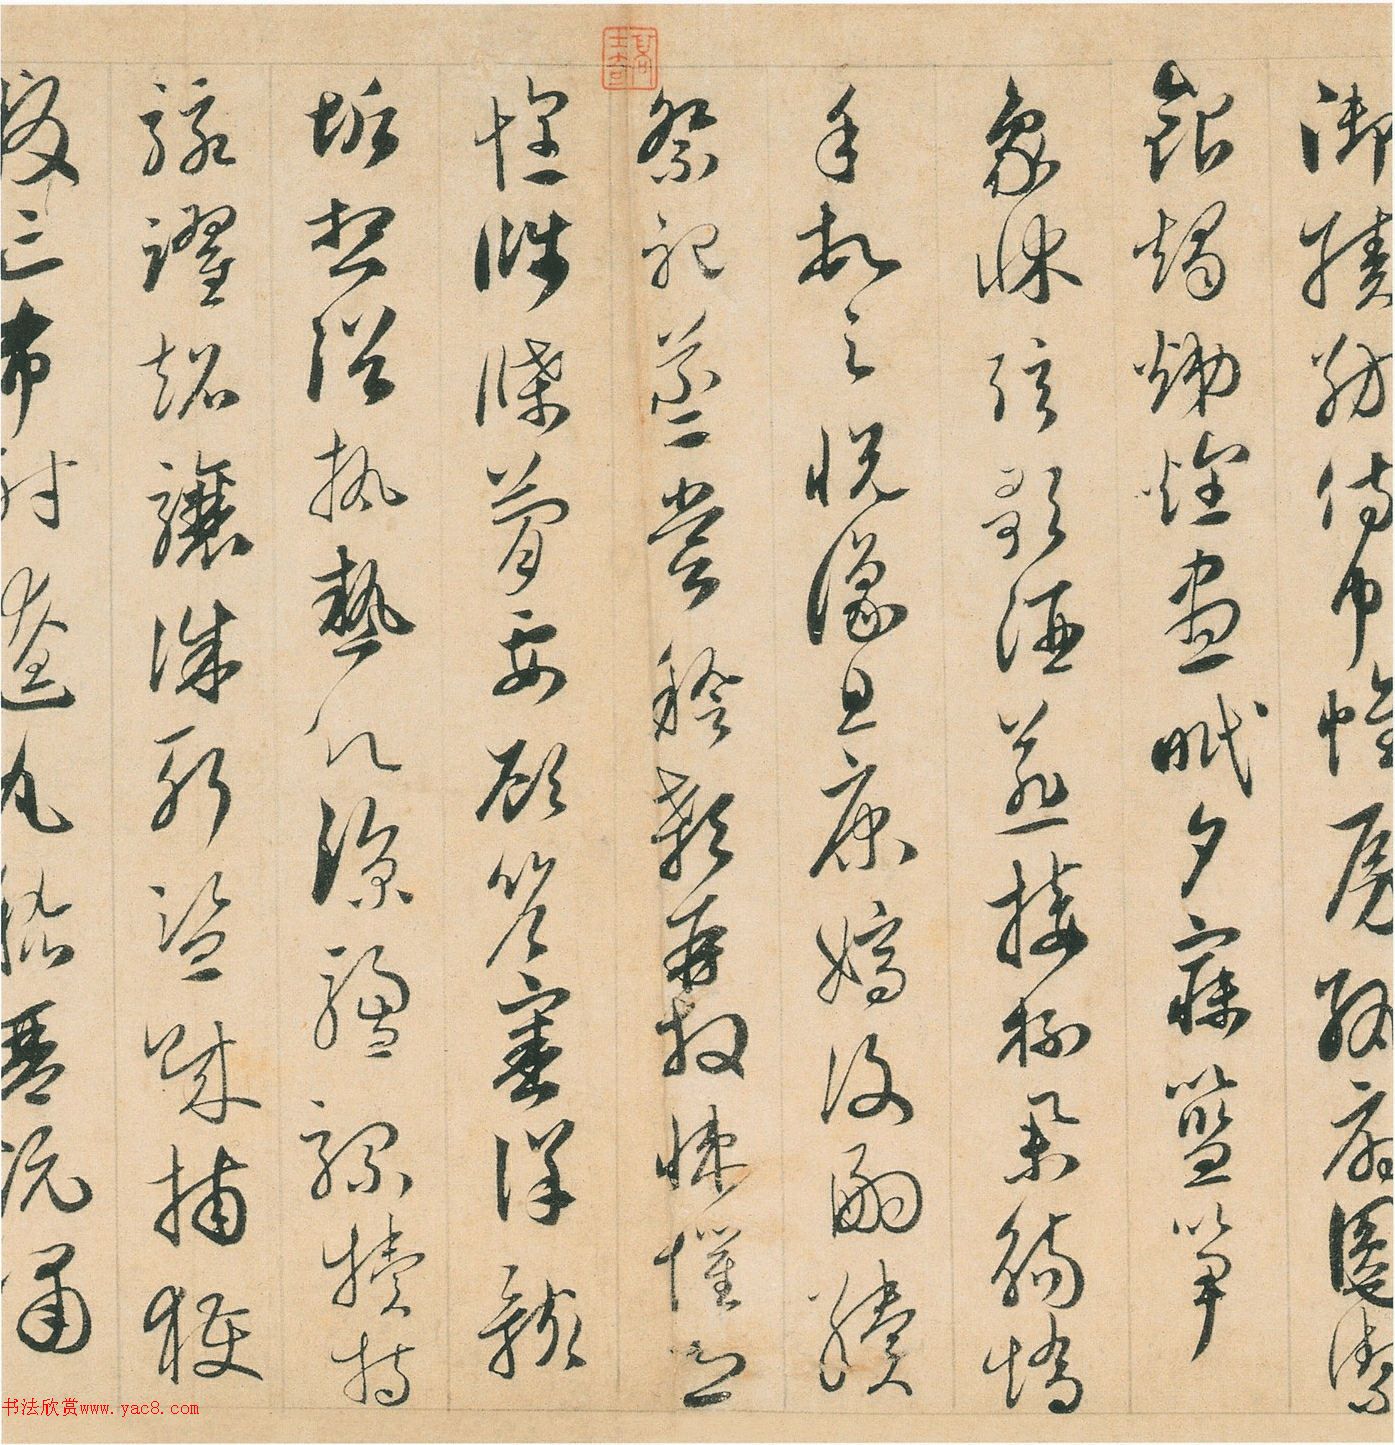 御績紡侍巾帷房紈扇圓潔
銀燭煒煌晝眠夕寐籃筍
象床弦歌酒燕接杯舉觴矯
手頓足悅豫且康嫡後嗣續
祭祀蒸嘗稽顙再拜悚懼恐
惶牋牒簡要顧答審詳骸
垢想浴執熱願涼驢騾犢特
駭躍超驤誅斬盜賊捕獲
叛亡布射遼丸嵇琴阮嘯
高士奇
书法欣赏www.yac8.com